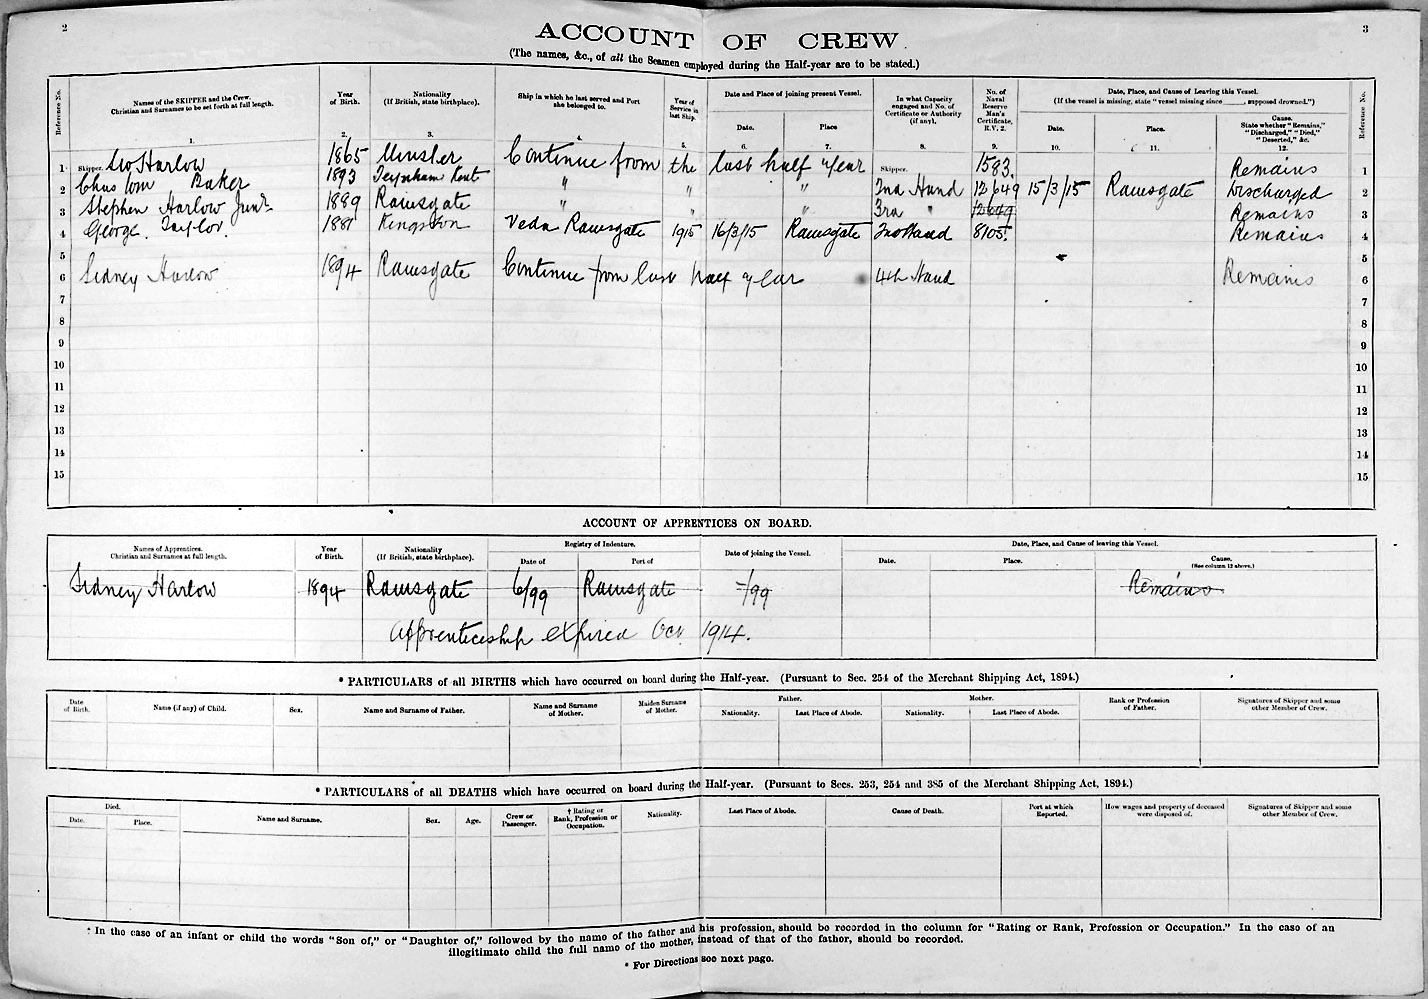 2
3
ACCOUNT OF CREW
(The names, &c., of all the Seamen employed during the Half-year are to be stated.)
Reference No.
Names of the SKIPPER and the Crew. Christian and Surnames to be set forth at full length.
Year of Birth.
Nationality (If British, state birthplace).
Ship in which he last served and Port she belonged to.
Year of Service in last Ship.
Date and Place of joining present Vessel.
Date.
Place
In what Capacity engaged and No. of Certificate or Authority (if any).
No. of Naval Reserve Man's Certificate, R.V. 2.
Date, Place, and Cause of Leaving this Vessel.
(If the vessel is missing, state "vessel missing since ____, supposed drowned.")
Date.
Place.
Cause. State whether "Remains," "Discharged," "Died," "Deserted," &c.
Reference No.
1. 2. 3. 4. 5. 6. 7. 8. 9. 10. 11. 12.
1 Skipper. Geo Harlow 1865 Minster Continue from the last half year Skipper. 1583. Remains 1
2 Chas Wm Baker 1893 Teynham Kent " " " 2nd Hand 12649 15/3/15 Ramsgate Discharged 2
3 Stephen Harlow Junr 1889 Ramsgate " " " 3rd " 12649 Remains 3
4 George Taylor 1881 Kingston Veda Ramsgate 1915 16/3/15 Ramsgate 2nd Hand 8105. Remains 4
5 5
6 Sidney Harlow 1894 Ramsgate Continue from last half year 4th Hand Remains 6
7 7
8 8
9 9
10 10
11 11
12 12
13 13
14 14
15 15
ACCOUNT OF APPRENTICES ON BOARD.
Names of Apprentices. Christian and Surnames at full length.
Year of Birth.
Nationality (If British, state birthplace).
Registry of Indenture.
Date of
Port of
Date of joining the Vessel.
Date, Place, and Cause of leaving this Vessel.
Date.
Place.
Cause. (See column 12 above.)
Sidney Harlow 1894 Ramsgate 6/99 Ramsgate -/99 Remains
Apprenticeship expired Oct 1914.
* PARTICULARS of all BIRTHS which have occurred on board during the Half-year. (Pursuant to Sec. 254 of the Merchant Shipping Act, 1894.)
Date of Birth.
Name (if any) of Child.
Sex.
Name and Surname of Father.
Name and Surname of Mother.
Maiden Surname of Mother.
Father.
Nationality.
Last Place of Abode.
Mother.
Nationality.
Last Place of Abode.
Rank or Profession of Father.
Signatures of Skipper and some other Member of Crew.
* PARTICULARS of all DEATHS which have occurred on board during the Half-year. (Pursuant to Secs. 253, 254 and 385 of the Merchant Shipping Act, 1894.)
Died.
Date.
Place.
Name and Surname.
Sex.
Age.
Crew or Passenger.
† Rating or Rank, Profession or Occupation.
Nationality.
Last Place of Abode.
Cause of Death.
Port at which Reported.
How wages and property of deceased were disposed of.
Signatures of Skipper and some other Member of Crew.
† In the case of an infant or child the words "Son of," or "Daughter of," followed by the name of the father and his profession, should be recorded in the column for "Rating or Rank, Profession or Occupation." In the case of an
illegitimate child the full name of the mother, instead of that of the father, should be recorded.
* For Directions see next page.